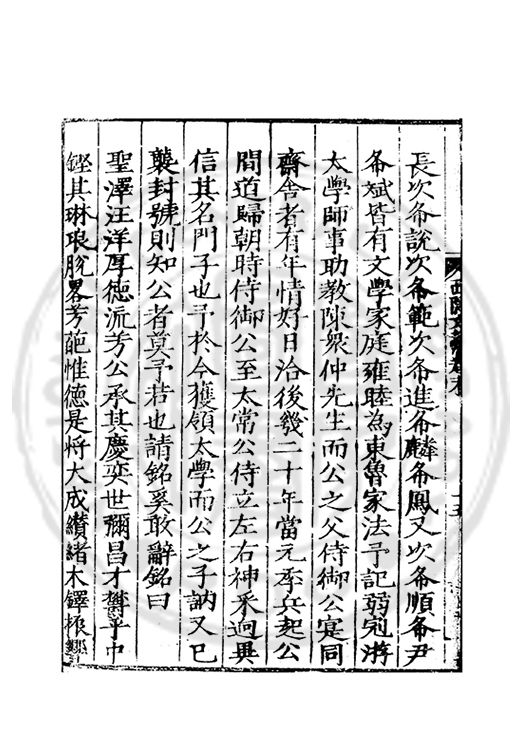 長次希說次希範次希進希麟希鳳又次希順希尹
希斌皆有文學家庭雍睦為東魯家法予記弱冠游
太學師事助教陳衆仲先生而公之父侍御公寔同
齋舍者有年情好日洽後幾二十年當元季兵起公
間道歸朝時侍御公至太常公侍立左右神采逈異
信其名門子也予於今獲領太學而公之子訥又已
襲封號則知公者莫予若也請銘奚敢辭銘曰
聖澤汪洋厚德流芳公承其慶奕世彌昌才欎乎中
鏗其琳琅脫畧芳葩惟德是將大成纘緒木鐸振